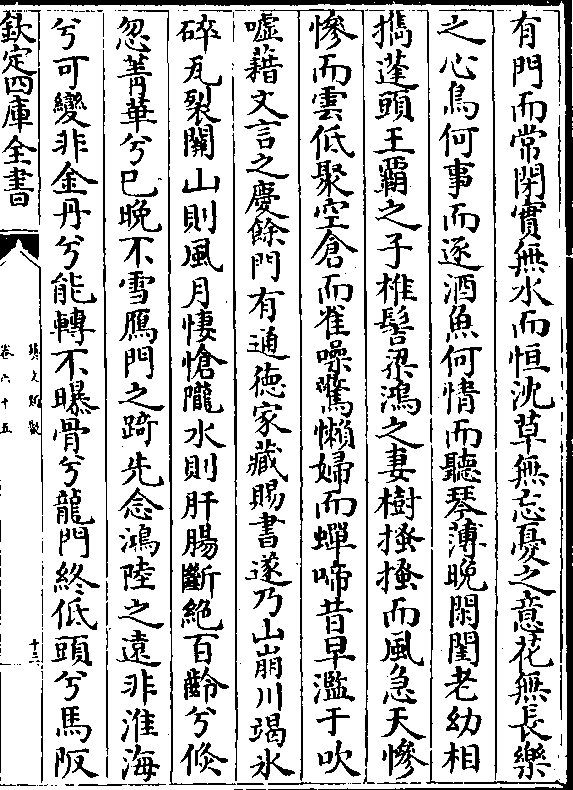 有門而常閉實無水而恒沈草無忘憂之意花無長樂
之心鳥何事而逐酒魚何情而聽琴薄晚閑閨老幼相
攜蓬頭王霸之子椎髻梁鴻之妻樹搔搔而風急天慘
慘而雲低聚空倉而雀噪驚懶婦而蟬啼昔早濫于吹
噓藉文言之慶餘門有通德家藏賜書遂乃山崩川竭氷
碎瓦裂關山則風月悽愴隴水則肝腸斷絶百齡兮倐
忽菁華兮已晚不雪鴈門之踦先念鴻陸之遠非淮海
兮可變非金丹兮能轉不曝骨兮龍門終低頭兮馬阪
欽定四庫全書
藝文類聚
卷六十五
十三